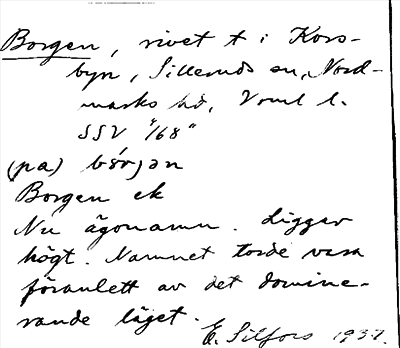 Borgen, rivet t i Kors-
byn, Silleruds sn, Nord-
marks hd, Vrml l.
SSV "168"
(pa) bór)ən
Borgen ek
Nu ägonamn. Ligger
högt. Namnet torde vara
föranlett av det domine-
rande läget.
E. Silfors 1937.